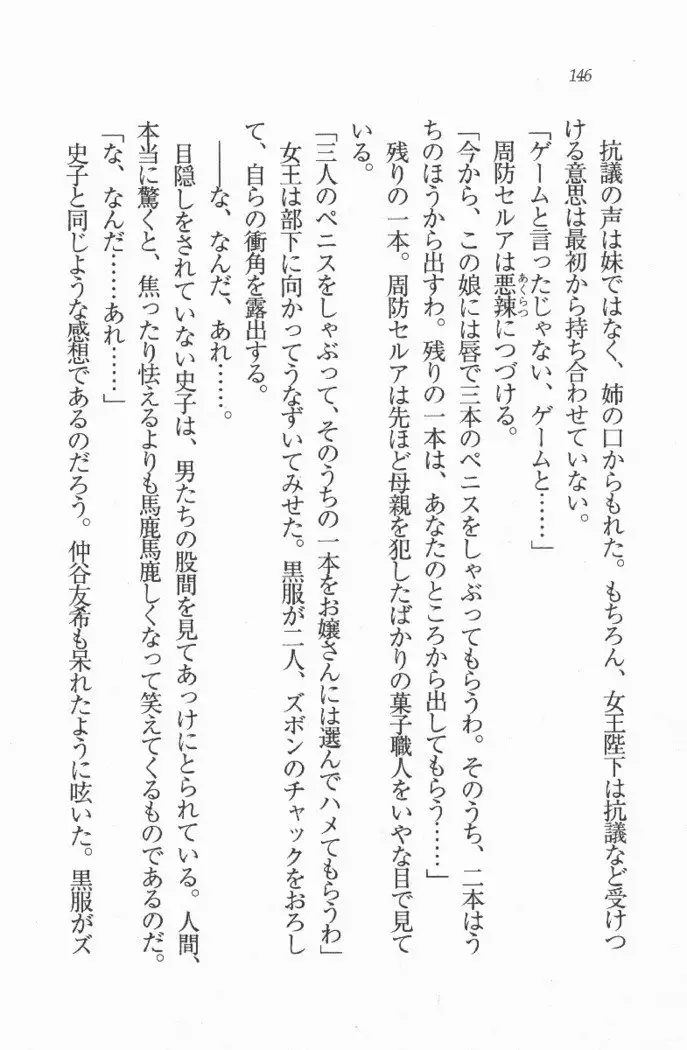 146
抗議の声は妹ではなく、姉の口からもれた。もちろん、女王陛下は抗議など受けつ
ける意思は最初から持ち合わせていない。
「ゲームと言ったじゃない、ゲームと……」
周防セルアは悪辣につづける。
あくらつ
「今から、この娘には唇で三本のペニスをしゃぶってもらうわ。そのうち、二本はう
ちのほうから出すわ。残りの一本は、あなたのところから出してもらう……」
残りの一本。周防セルアは先ほど母親を犯したばかりの菓子職人をいやな目で見て
いる。
「三人のペニスをしゃぶって、そのうちの一本をお嬢さんには選んでハメてもらうわ」
女王は部下に向かってうなずいてみせた。黒服が二人、ズボンのチャックをおろし
て、自らの衝角を露出する。
――な、なんだ、あれ……。
目隠しをされていない史子は、男たちの股間を見てあっけにとられている。人間、
本当に驚くと、焦ったり怯えるよりも馬鹿馬鹿しくなって笑えてくるものであるのだ。
「な、なんだ……あれ……」
史子と同じような感想であるのだろう。仲谷友希も呆れたように呟いた。黒服がズ